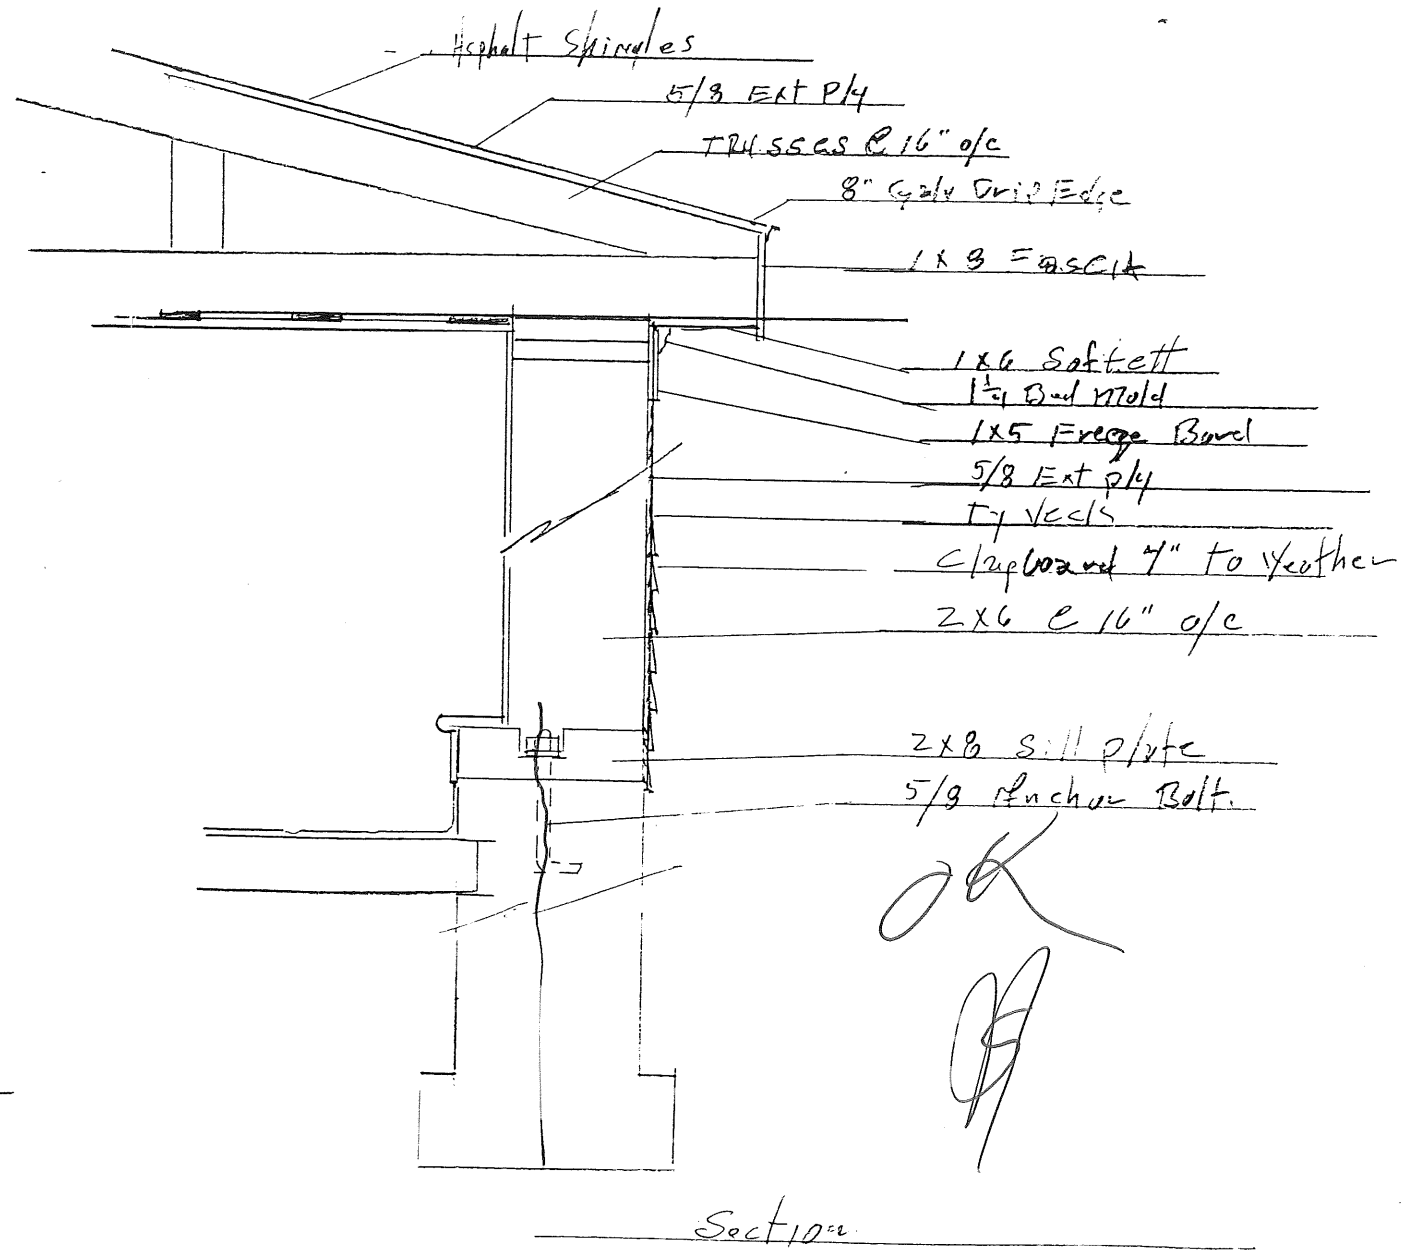 Asphalt Shingles
5/8 Ext Ply
TRUSSES @ 16" o/c
8" Galv Drip Edge
1 x 8 FASCIA
1x6 Soffett
1 1/4 Bed Mold
1x5 Freeze Bord
5/8 Ext ply
Ty Veck
Clapboard 4" to Weather
2x6 @ 16" o/c
2x8 Sill plate
5/8 Anchor Bolt.
OK
Section